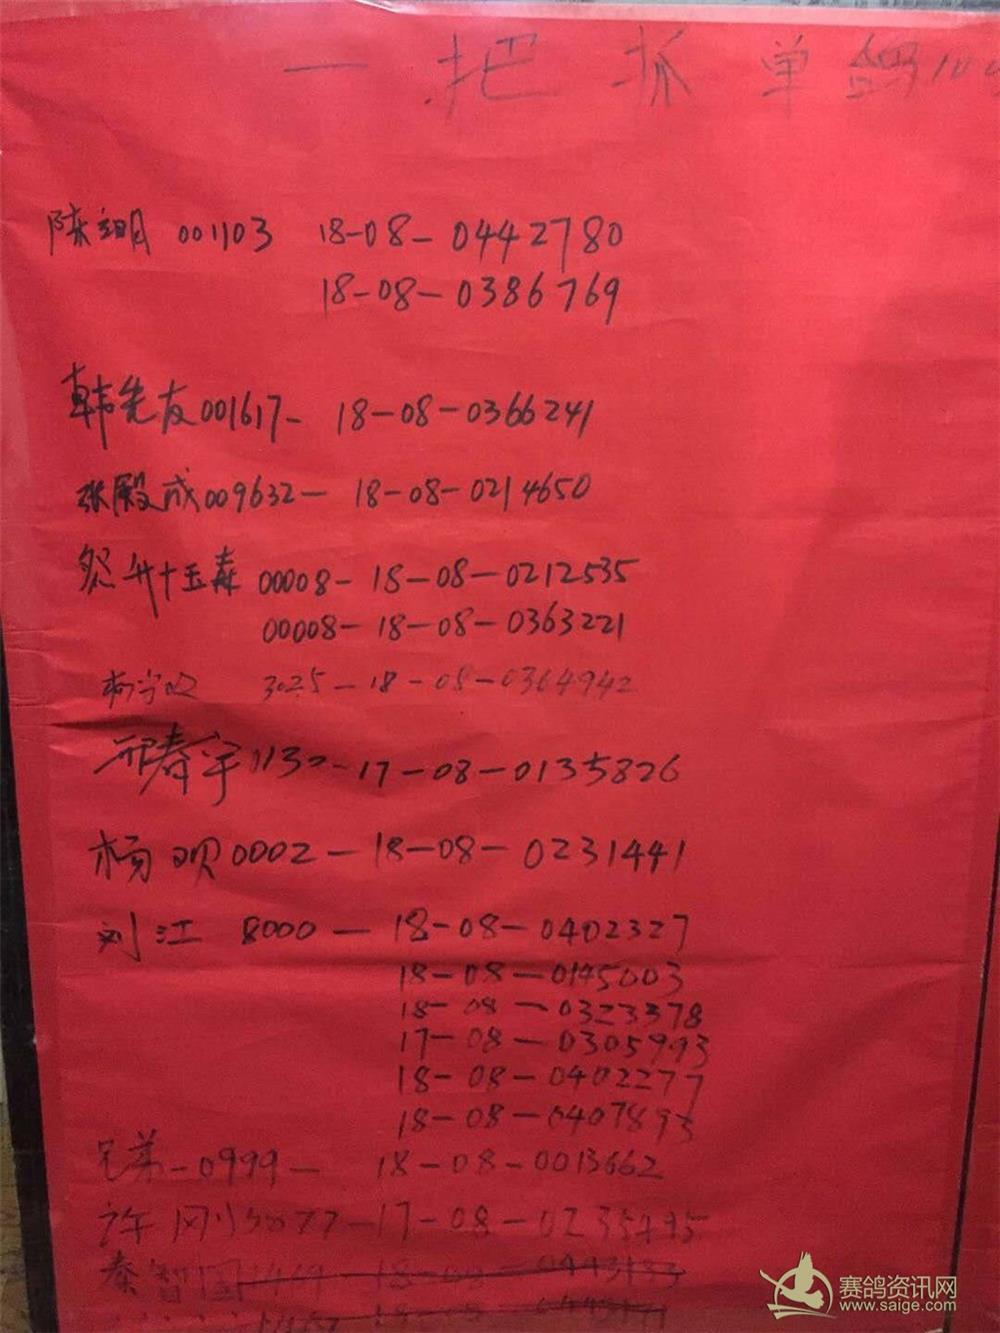 一把抓单鸽10
陈翊 001103 18-08-0442780
18-08-0386769
韩先友001617- 18-08-0366241
张殿成009632- 18-08-0214650
00008-18-08-0212535
00008-18-08-0363221
3025-18-08-0364942
邢春宇1132-17-08-0135826
杨 0002-18-08-0231441
刘江 8000-18-08-0402327
18-08-0145003
18-08-0323378
17-08-0305993
18-08-0402277
18-08-0407893
兄弟-0999- 18-08-0013662
许刚 -17-08-0235495
秦智国
赛鸽资讯网
www.saige.com